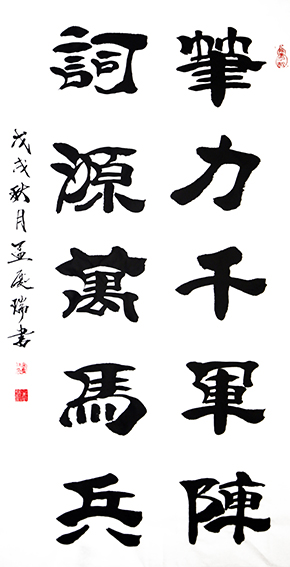 筆力千軍陳
詞源萬馬兵
戊戌秋月孟庆瑞書